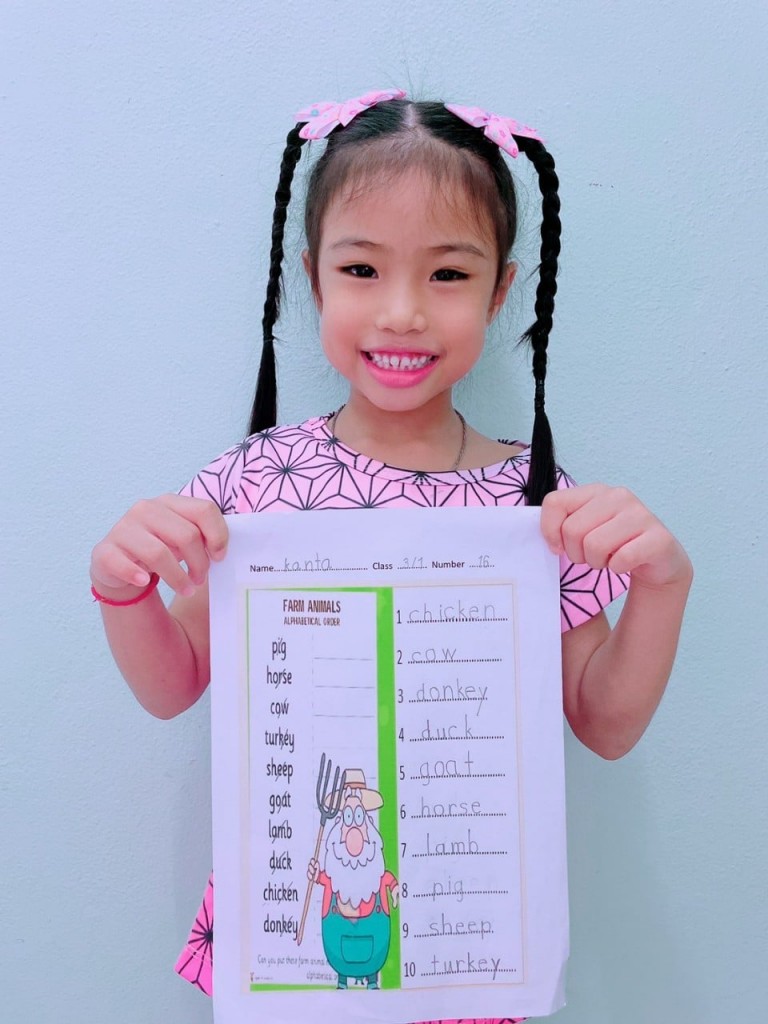 Name....kanta.................. Class ...3/1.. Number ...16...
FARM ANIMALS
ALPHABETICAL ORDER
pig
horse
cow
turkey
sheep
goat
lamb
duck
chicken
donkey
Can you put these farm animal
alphabetical
1 chicken
2 cow
3 donkey
4 duck
5 goat
6 horse
7 lamb
8 pig
9 sheep
10 turkey